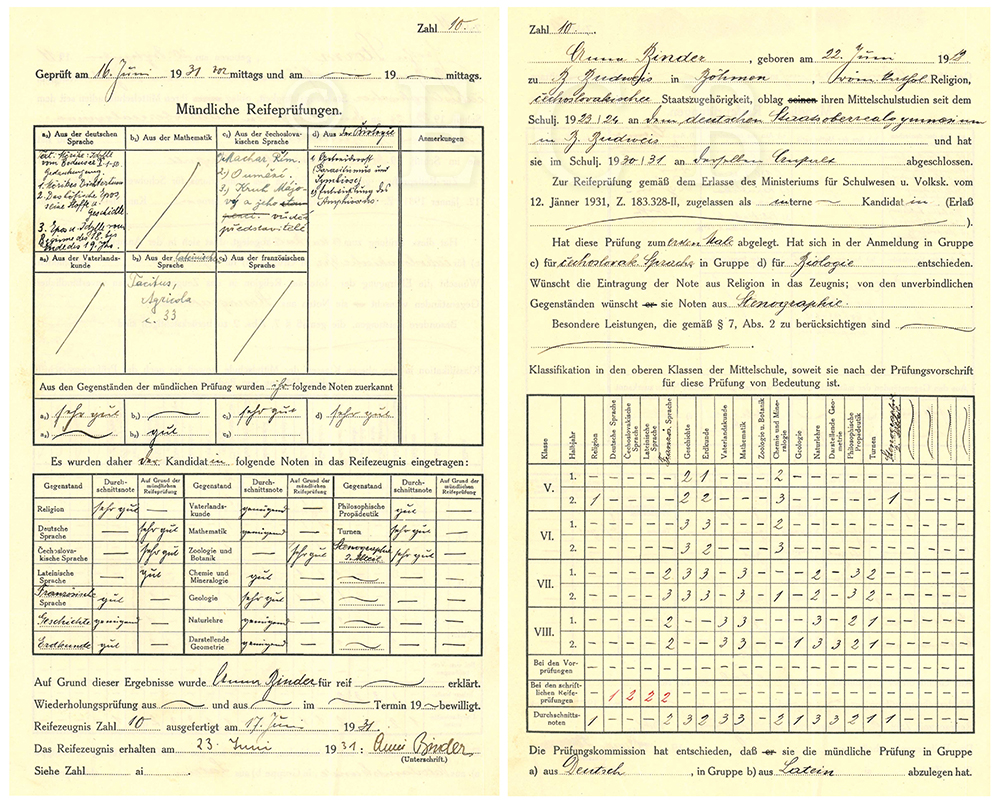 Zahl 10.
Geprüft am 16. Juni 1931 vormittags und am 19 mittags.
Mündliche Reifeprüfungen.
a₁) Aus der deutschen Sprache
b₁) Aus der Mathematik
c₁) Aus der čechoslovakischen Sprache
d) Aus der Biologie
Anmerkungen
vom Bodensee
1. Mörikes
2. Das höfische Epos, seine Stoffe u. Geschichte
3. Epos u. Idylle vom Beginne des 18. bis Ende des 19. Jhs.
Machar, Řím.
2)
3)
představitelé
1)
(Parasitismus und Symbiose)
2) Entwicklung des Amphioxus.
a₂) Aus der Vaterlandskunde
b₂) Aus der lateinischen Sprache
c₂) Aus der französischen Sprache
Tacitus,
Agricola
c. 33
Aus den Gegenständen der mündlichen Prüfung wurden ihr folgende Noten zuerkannt
a₁) sehr gut b₁) c₁) sehr gut d) sehr gut
a₂) b₂) gut c₂)
Es wurden daher der Kandidatin folgende Noten in das Reifezeugnis eingetragen:
Gegenstand Durchschnittsnote Auf Grund der mündlichen Reifeprüfung Gegenstand Durchschnittsnote Auf Grund der mündlichen Reifeprüfung Gegenstand Durchschnittsnote Auf Grund der mündlichen Reifeprüfung
Religion sehr gut — Vaterlandskunde genügend — Philosophische Propädeutik gut —
Deutsche Sprache — sehr gut Mathematik genügend — Turnen sehr gut —
Čechoslovakische Sprache — sehr gut Zoologie und Botanik — sehr gut Stenographie sehr gut —
Lateinische Sprache — gut Chemie und Mineralogie gut —
Französische Sprache gut — Geologie sehr gut —
Geschichte genügend — Naturlehre genügend —
Erdkunde gut — Darstellende Geometrie genügend —
Auf Grund dieser Ergebnisse wurde Anna Binder für reif erklärt.
Wiederholungsprüfung aus und aus im Termin 19 bewilligt.
Reifezeugnis Zahl 10 ausgefertigt am 17. Juni 1931.
Das Reifezeugnis erhalten am 23. Juni 1931. Anni Binder
(Unterschrift.)
Siehe Zahl ai
Zahl 10.
Anna Binder, geboren am 22. Juni 19
zu B. Budweis in Böhmen, röm. kathol. Religion,
čechoslovakischer Staatszugehörigkeit, oblag seinen ihren Mittelschulstudien seit dem
Schulj. 1923/24 an dem deutschen Staatsoberrealgymnasium
in B. Budweis und hat
sie im Schulj. 1930/31 an derselben Anstalt abgeschlossen.
Zur Reifeprüfung gemäß dem Erlasse des Ministeriums für Schulwesen u. Volksk. vom
12. Jänner 1931, Z. 183.328-II, zugelassen als interne Kandidatin (Erlaß
).
Hat diese Prüfung zum ersten Male abgelegt. Hat sich in der Anmeldung in Gruppe
c) für čechoslovak. Sprache in Gruppe d) für Biologie entschieden.
Wünscht die Eintragung der Note aus Religion in das Zeugnis; von den unverbindlichen
Gegenständen wünscht er sie Noten aus Stenographie.
Besondere Leistungen, die gemäß § 7, Abs. 2 zu berücksichtigen sind
Klassifikation in den oberen Klassen der Mittelschule, soweit sie nach der Prüfungsvorschrift
für diese Prüfung von Bedeutung ist.
Klasse Halbjahr Religion Deutsche Sprache Čechoslovakische Sprache Lateinische Sprache Franzos. Sprache Geschichte Erdkunde Vaterlandskunde Mathematik Zoologie u. Botanik Chemie und Mineralogie Geologie Naturlehre Darstellende Geometrie Philosophische Propädeutik Turnen Stenographie
V. 1. – – – – – 2 1 – – – 2 – – – – – –
2. 1 – – – – 2 2 – – – 3 – – – – – 1
VI. 1. – – – – – 3 3 – – – 2 – – – – – –
2. – – – – – 3 2 – – – 3 – – – – – –
VII. 1. – – – – 2 3 3 – 3 – – – 2 – 3 2 –
2. – – – – 3 3 3 – 3 – 1 – 2 – 3 2 –
VIII. 1. – – – – 2 – – 3 3 – – – 3 – 2 1
2. – – – – 2 – – 3 3 – – 1 3 3 2 1
Bei den Vorprüfungen
Bei den schriftlichen Reifeprüfungen – 1 2 2 2
Durchschnittsnoten 1 – – – 2 3 2 3 3 – 2 1 3 3 2 1 1
Die Prüfungskommission hat entschieden, daß er sie die mündliche Prüfung in Gruppe
a) aus Deutsch, in Gruppe b) aus Latein abzulegen hat.